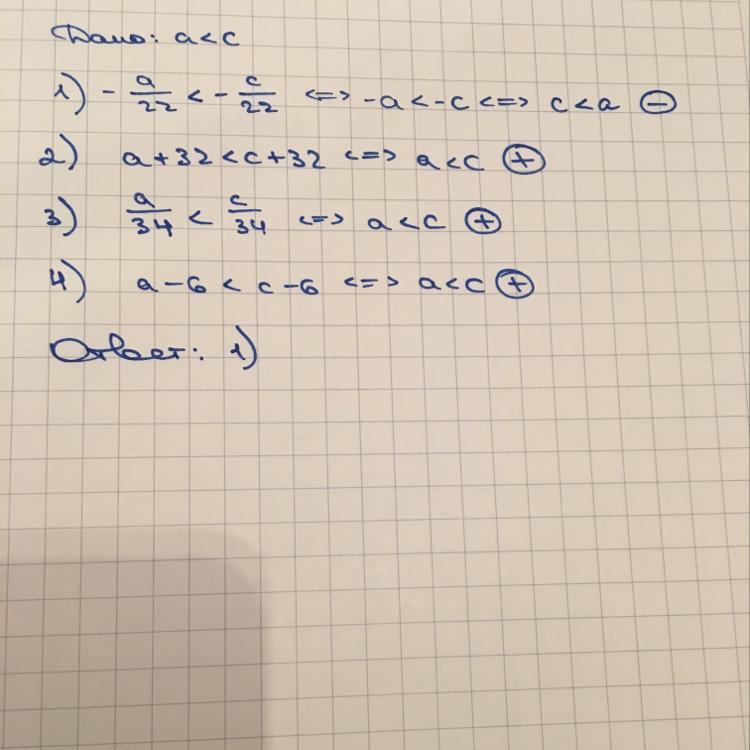 Дано: a < c
1) - a/22 < - c/22 <=> -a < -c <=> c < a ⊖
2) a + 32 < c + 32 <=> a < c ⊕
3) a/34 < c/34 <=> a < c ⊕
4) a - 6 < c - 6 <=> a < c ⊕
Ответ: 1)